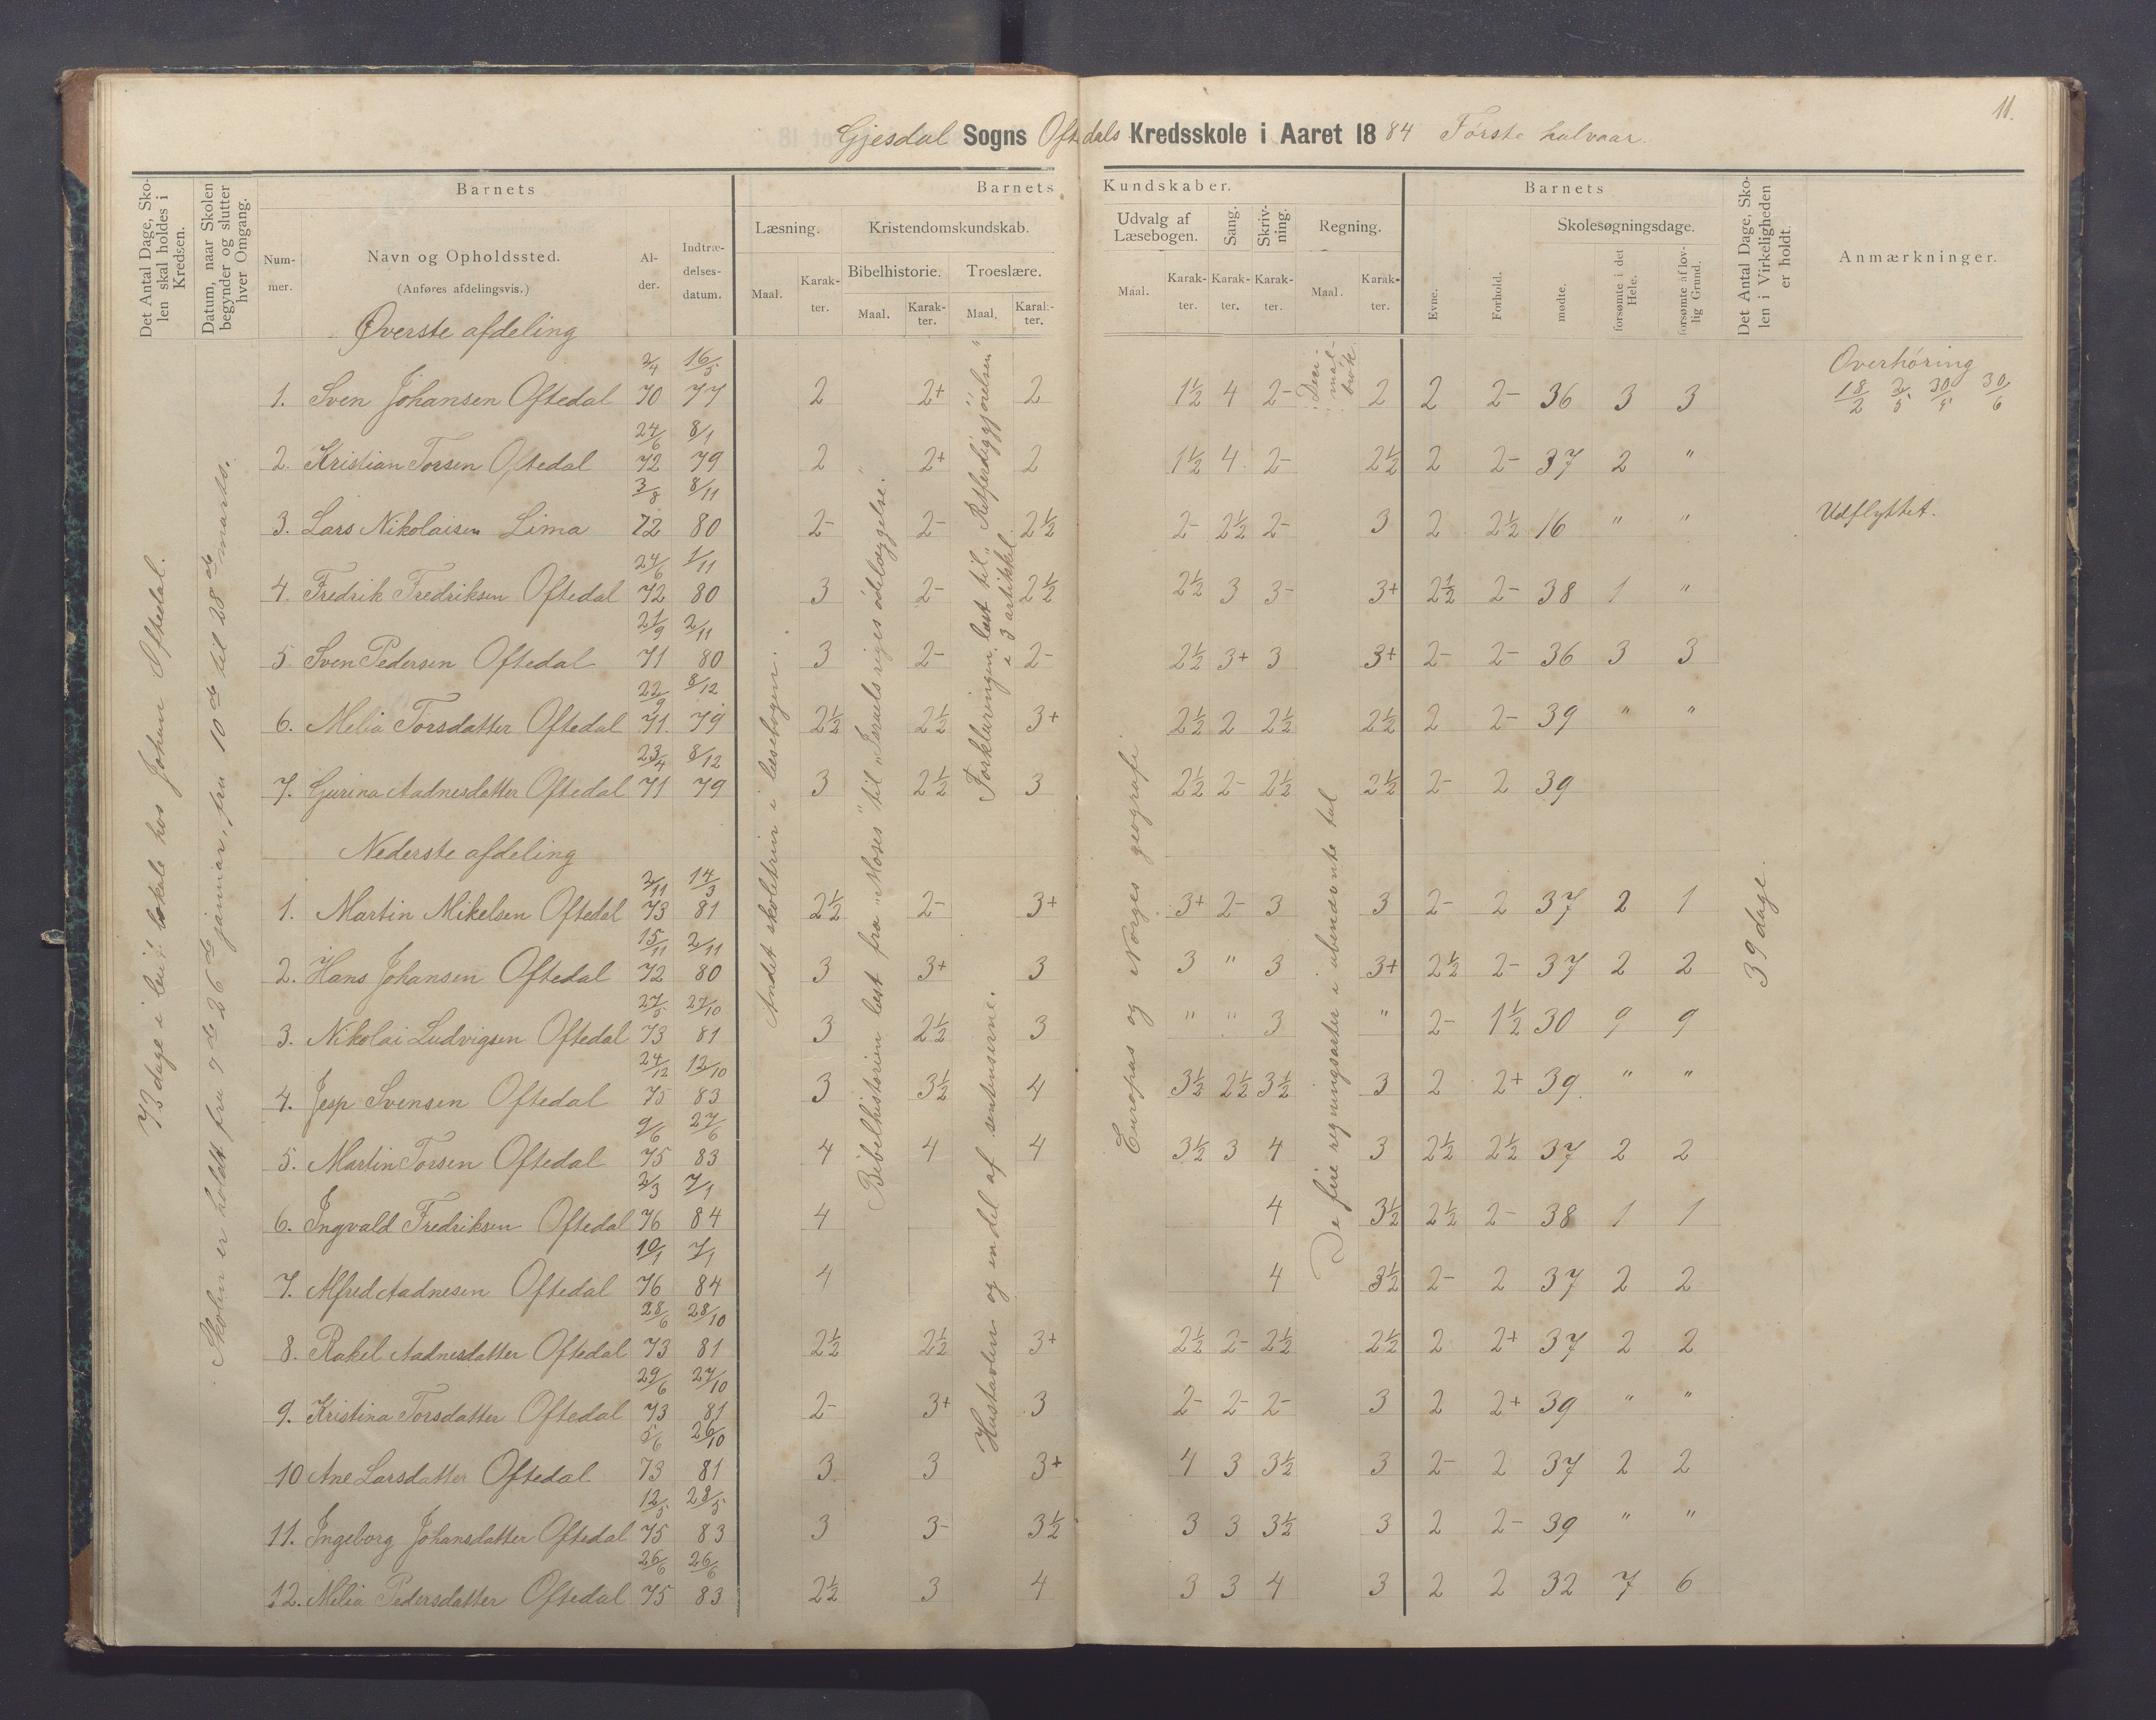 11.
Gjesdal Sogns Oftedals Kredsskole i Aaret 1884 Første halvaar.
Det Antal Dage, Skolen skal holdes i Kredsen.
Datum, naar Skolen begynder og slutter hver Omgang.
Barnets
Nummer.
Navn og Opholdssted.
(Anføres afdelingsvis.)
Alder.
Indtrædelsesdatum.
Barnets Kundskaber.
Læsning.
Maal.
Karakter.
Kristendomskundskab.
Bibelhistorie.
Maal.
Karakter.
Troeslære.
Maal.
Karakter.
Udvalg af Læsebogen.
Maal.
Karakter.
Sang.
Karakter.
Skrivning.
Karakter.
Regning.
Maal.
Karakter.
Barnets
Evne.
Forhold.
Skolesøgningsdage.
mødte.
forsømte i det Hele.
forsømte af lovlig Grund.
Det Antal Dage, Skolen i Virkeligheden er holdt.
Anmærkninger.
73 dage i leiet lokale hos Johan Oftedal.
Skolen er holdt fra 7de 26de januar, fra 10de til 28de marts.
Andet skoletrin i læsebogen.
Bibelhistorien læst fra „Moses" til „Israels riges ødelæggelse."
Forklaringen læst til „Retferdiggjørelsen" i 3 artikkel
Hustavlen og en del af sentenserne.
Europas og Norges geografi
Decimalbrøk
De fire regningsarter i ubenævnte tal
39 dage.
Øverste afdeling
Overhøring
18/2 2/5 30/5 30/6
1. Sven Johansen Oftedal 2/4 70 16/5 77 2 2+ 2 1½ 4 2- 2 2 2- 36 3 3
2. Kristian Torsen Oftedal 24/6 72 8/1 79 2 2+ 2 1½ 4 2- 2½ 2 2- 37 2 "
3. Lars Nikolaisen Lima 3/8 72 8/11 80 2- 2- 2½ 2- 2½ 2- 3 2 2½ 16 " " Udflyttet.
4. Fredrik Fredriksen Oftedal 24/6 72 1/11 80 3 2- 2½ 2½ 3 3- 3+ 2½ 2- 38 1 "
5. Sven Pedersen Oftedal 21/9 71 2/11 80 3 2- 2- 2½ 3+ 3 3+ 2- 2- 36 3 3
6. Melia Torsdatter Oftedal 22/9 71 8/12 79 2½ 2½ 3+ 2½ 2 2½ 2½ 2 2- 39 " "
7. Gurina Aadnesdatter Oftedal 23/4 71 8/12 79 3 2½ 3 2½ 2- 2½ 2½ 2- 2 39
Nederste afdeling
1. Martin Mikelsen Oftedal 2/11 73 14/3 81 2½ 2- 3+ 3+ 2- 3 3 2- 2 37 2 1
2. Hans Johansen Oftedal 15/11 72 2/11 80 3 3+ 3 3 " 3 3+ 2½ 2- 37 2 2
3. Nikolai Ludvigsen Oftedal 27/5 73 27/10 81 3 2½ 3 " " 3 " 2- 1½ 30 9 9
4. Jesp Svensen Oftedal 24/12 75 12/10 83 3 3½ 4 3½ 2½ 3½ 3 2 2+ 39 " "
5. Martin Torsen Oftedal 9/6 75 27/6 83 4 4 4 3½ 3 4 3 2½ 2½ 37 2 2
6. Ingvald Fredriksen Oftedal 2/3 76 7/1 84 4 4 3½ 2½ 2- 38 1 1
7. Alfred Aadnesen Oftedal 10/1 76 7/1 84 4 4 3½ 2- 2 37 2 2
8. Rakel Aadnesdatter Oftedal 28/6 73 28/10 81 2½ 2½ 3+ 2½ 2- 2½ 2½ 2 2+ 37 2 2
9. Kristina Torsdatter Oftedal 29/6 73 27/10 81 2- 3+ 3 2- 2- 2- 3 2 2+ 39 " "
10 Ane Larsdatter Oftedal 5/6 73 26/10 81 3 3 3+ 4 3 3½ 3 2- 2 37 2 2
11. Ingeborg Johansdatter Oftedal 12/5 75 28/5 83 3 3- 3½ 3 3 3½ 3 2 2- 39 " "
12. Melia Pedersdatter Oftedal 26/6 75 26/6 83 2½ 3 4 3 3 4 3 2 2 32 7 6